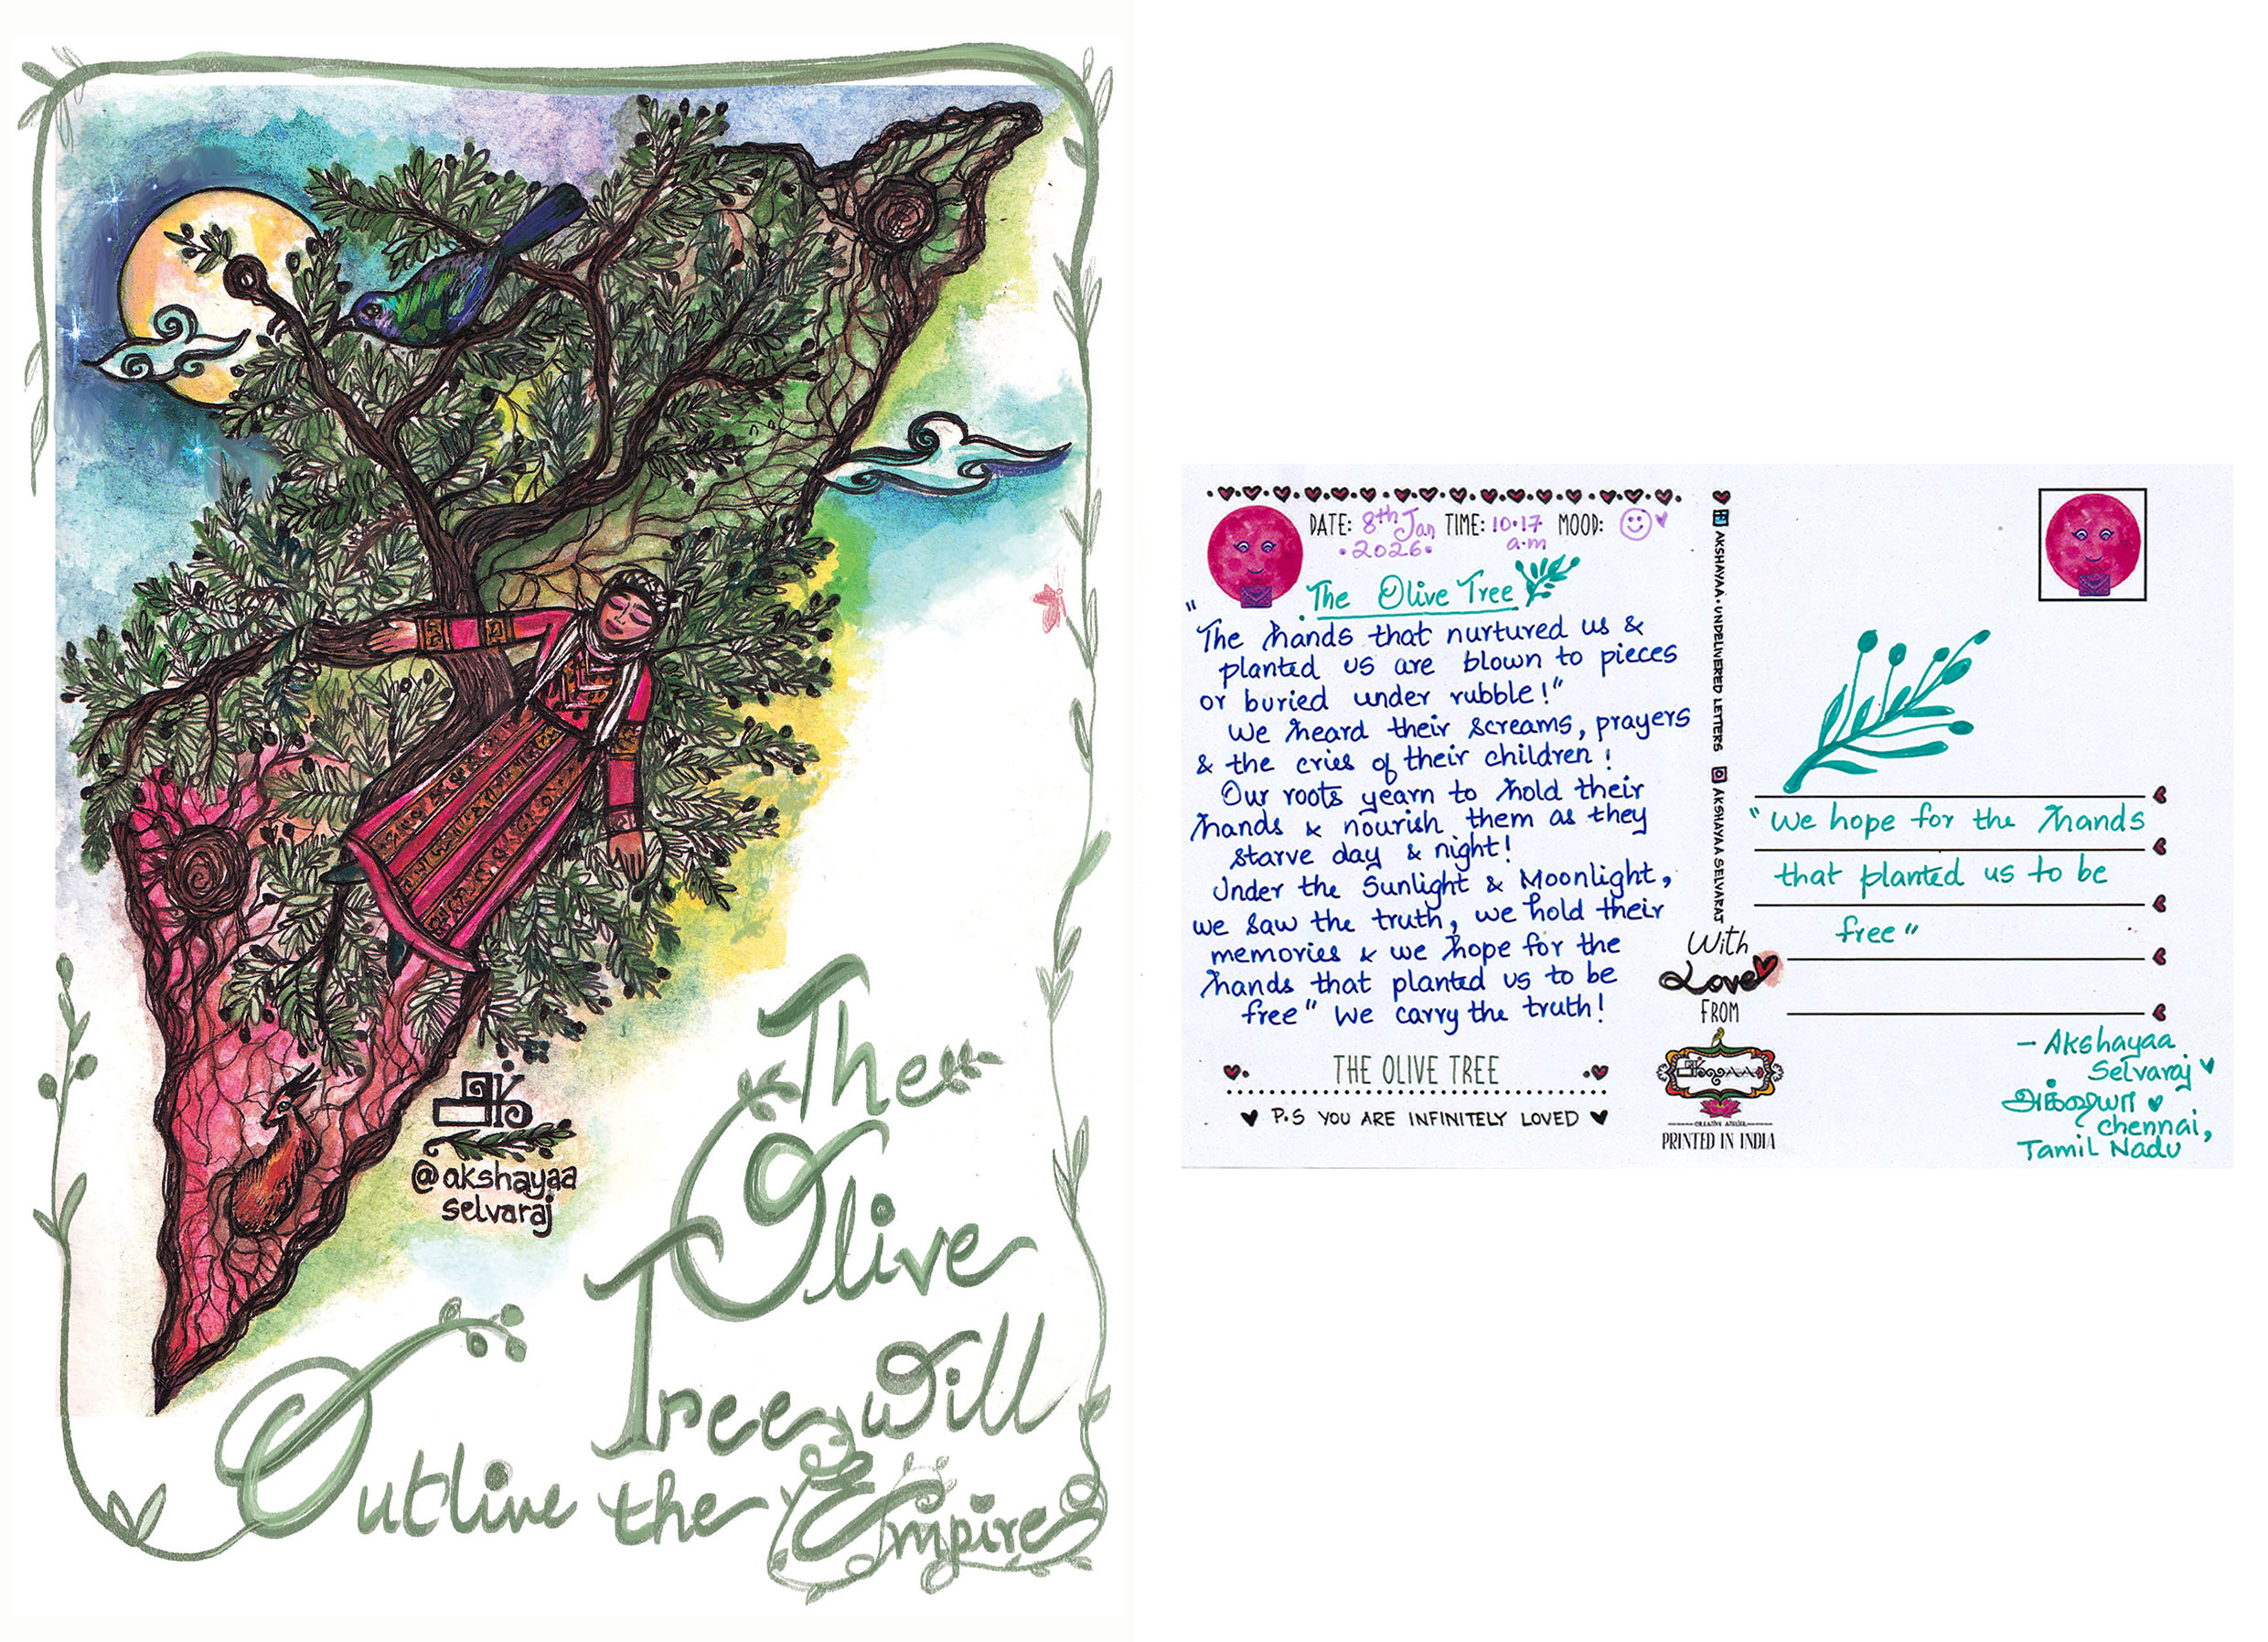 அK
@akshayaa
selvaraj
The
Olive
Tree will
Outlive the Empire
DATE: 8th Jan TIME: 10.17 MOOD:
.2026. a.m
The Olive Tree
"The hands that nurtured us &
planted us are blown to pieces
or buried under rubble!"
We heard their screams, prayers
& the cries of their children!
Our roots yearn to hold their
hands & nourish them as they
starve day & night!
Under the Sunlight & Moonlight,
we saw the truth, we hold their
memories & we hope for the
hands that planted us to be
free" We carry the truth!
THE OLIVE TREE
P.S YOU ARE INFINITELY LOVED
AKSHAYAA. UNDELIVERED LETTERS
AKSHAYAA SELVARAJ
With
Love
FROM
CREATIVE ATELIER
PRINTED IN INDIA
"We hope for the hands
that planted us to be
free"
- Akshayaa
Selvaraj
அக்ஷயா
Chennai,
Tamil Nadu